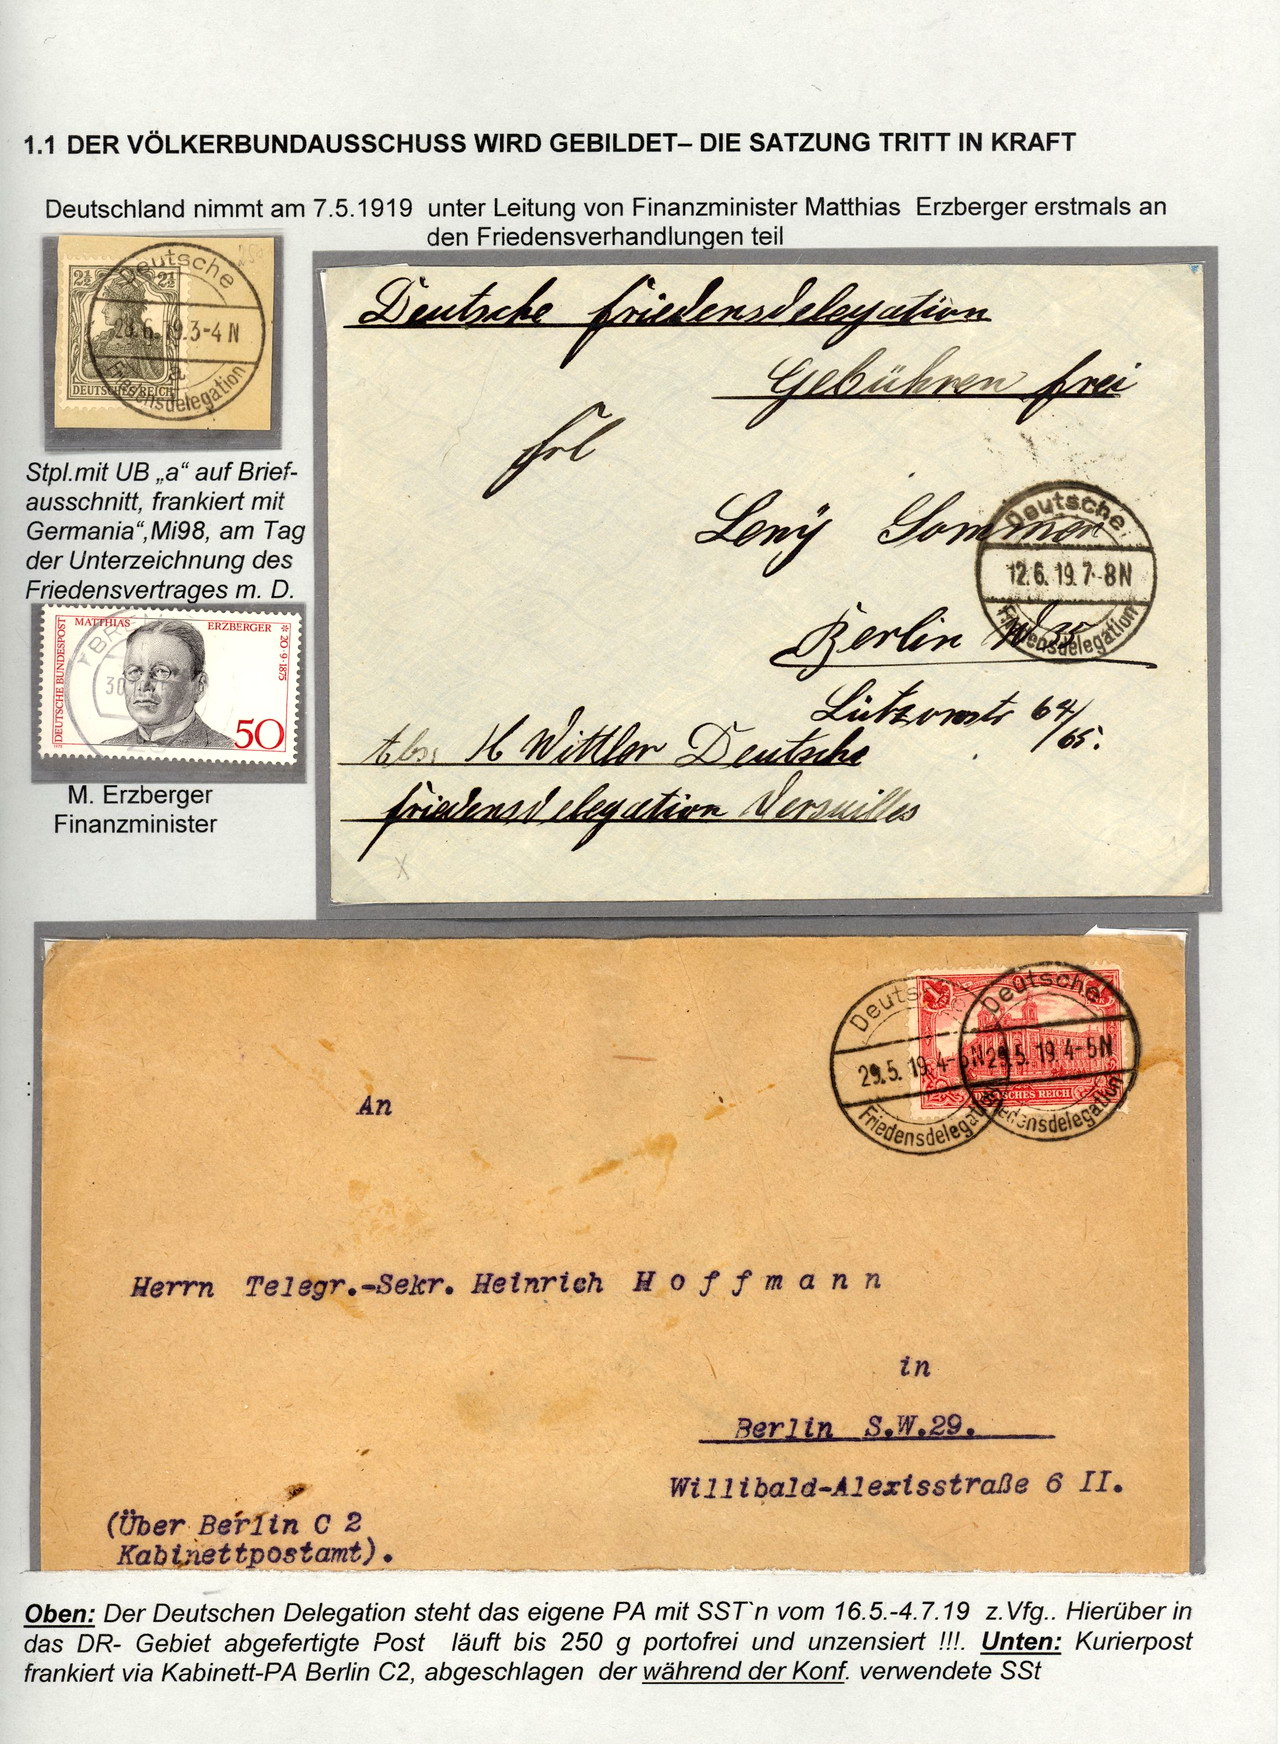 1.1 DER VÖLKERBUNDAUSSCHUSS WIRD GEBILDET– DIE SATZUNG TRITT IN KRAFT
Deutschland nimmt am 7.5.1919 unter Leitung von Finanzminister Matthias Erzberger erstmals an
den Friedensverhandlungen teil
Deutsche
2½ 2½
6.19.3-4 N
a
DEUTSCHES REICH
Friedensdelegation
Stpl.mit UB „a“ auf Brief-
ausschnitt, frankiert mit
Germania“,Mi98, am Tag
der Unterzeichnung des
Friedensvertrages m. D.
DEUTSCHE BUNDESPOST
MATTHIAS ERZBERGER
* 20·9·1875
30
50
M. Erzberger
Finanzminister
Deutsche Friedensdelegation
Gebühren frei
Frl
Leny Sommer
Deutsche
12.6.19.7-8N
Friedensdelegation
Berlin W 35
Lützowstr 64/65.
Abs. H Wittler Deutsche
Friedensdelegation Versailles
Deutsche
29.5.19.4-5N
Friedensdelegation
Deutsche
29.5.19.4-5N
Friedensdelegation
DEUTSCHES REICH
An
Herrn Telegr.-Sekr. Heinrich Hoffmann
in
Berlin S.W.29.
Willibald-Alexisstraße 6 II.
(Über Berlin C 2
Kabinettpostamt).
Oben: Der Deutschen Delegation steht das eigene PA mit SST`n vom 16.5.-4.7.19 z.Vfg.. Hierüber in
das DR- Gebiet abgefertigte Post läuft bis 250 g portofrei und unzensiert !!!. Unten: Kurierpost
frankiert via Kabinett-PA Berlin C2, abgeschlagen der während der Konf. verwendete SSt